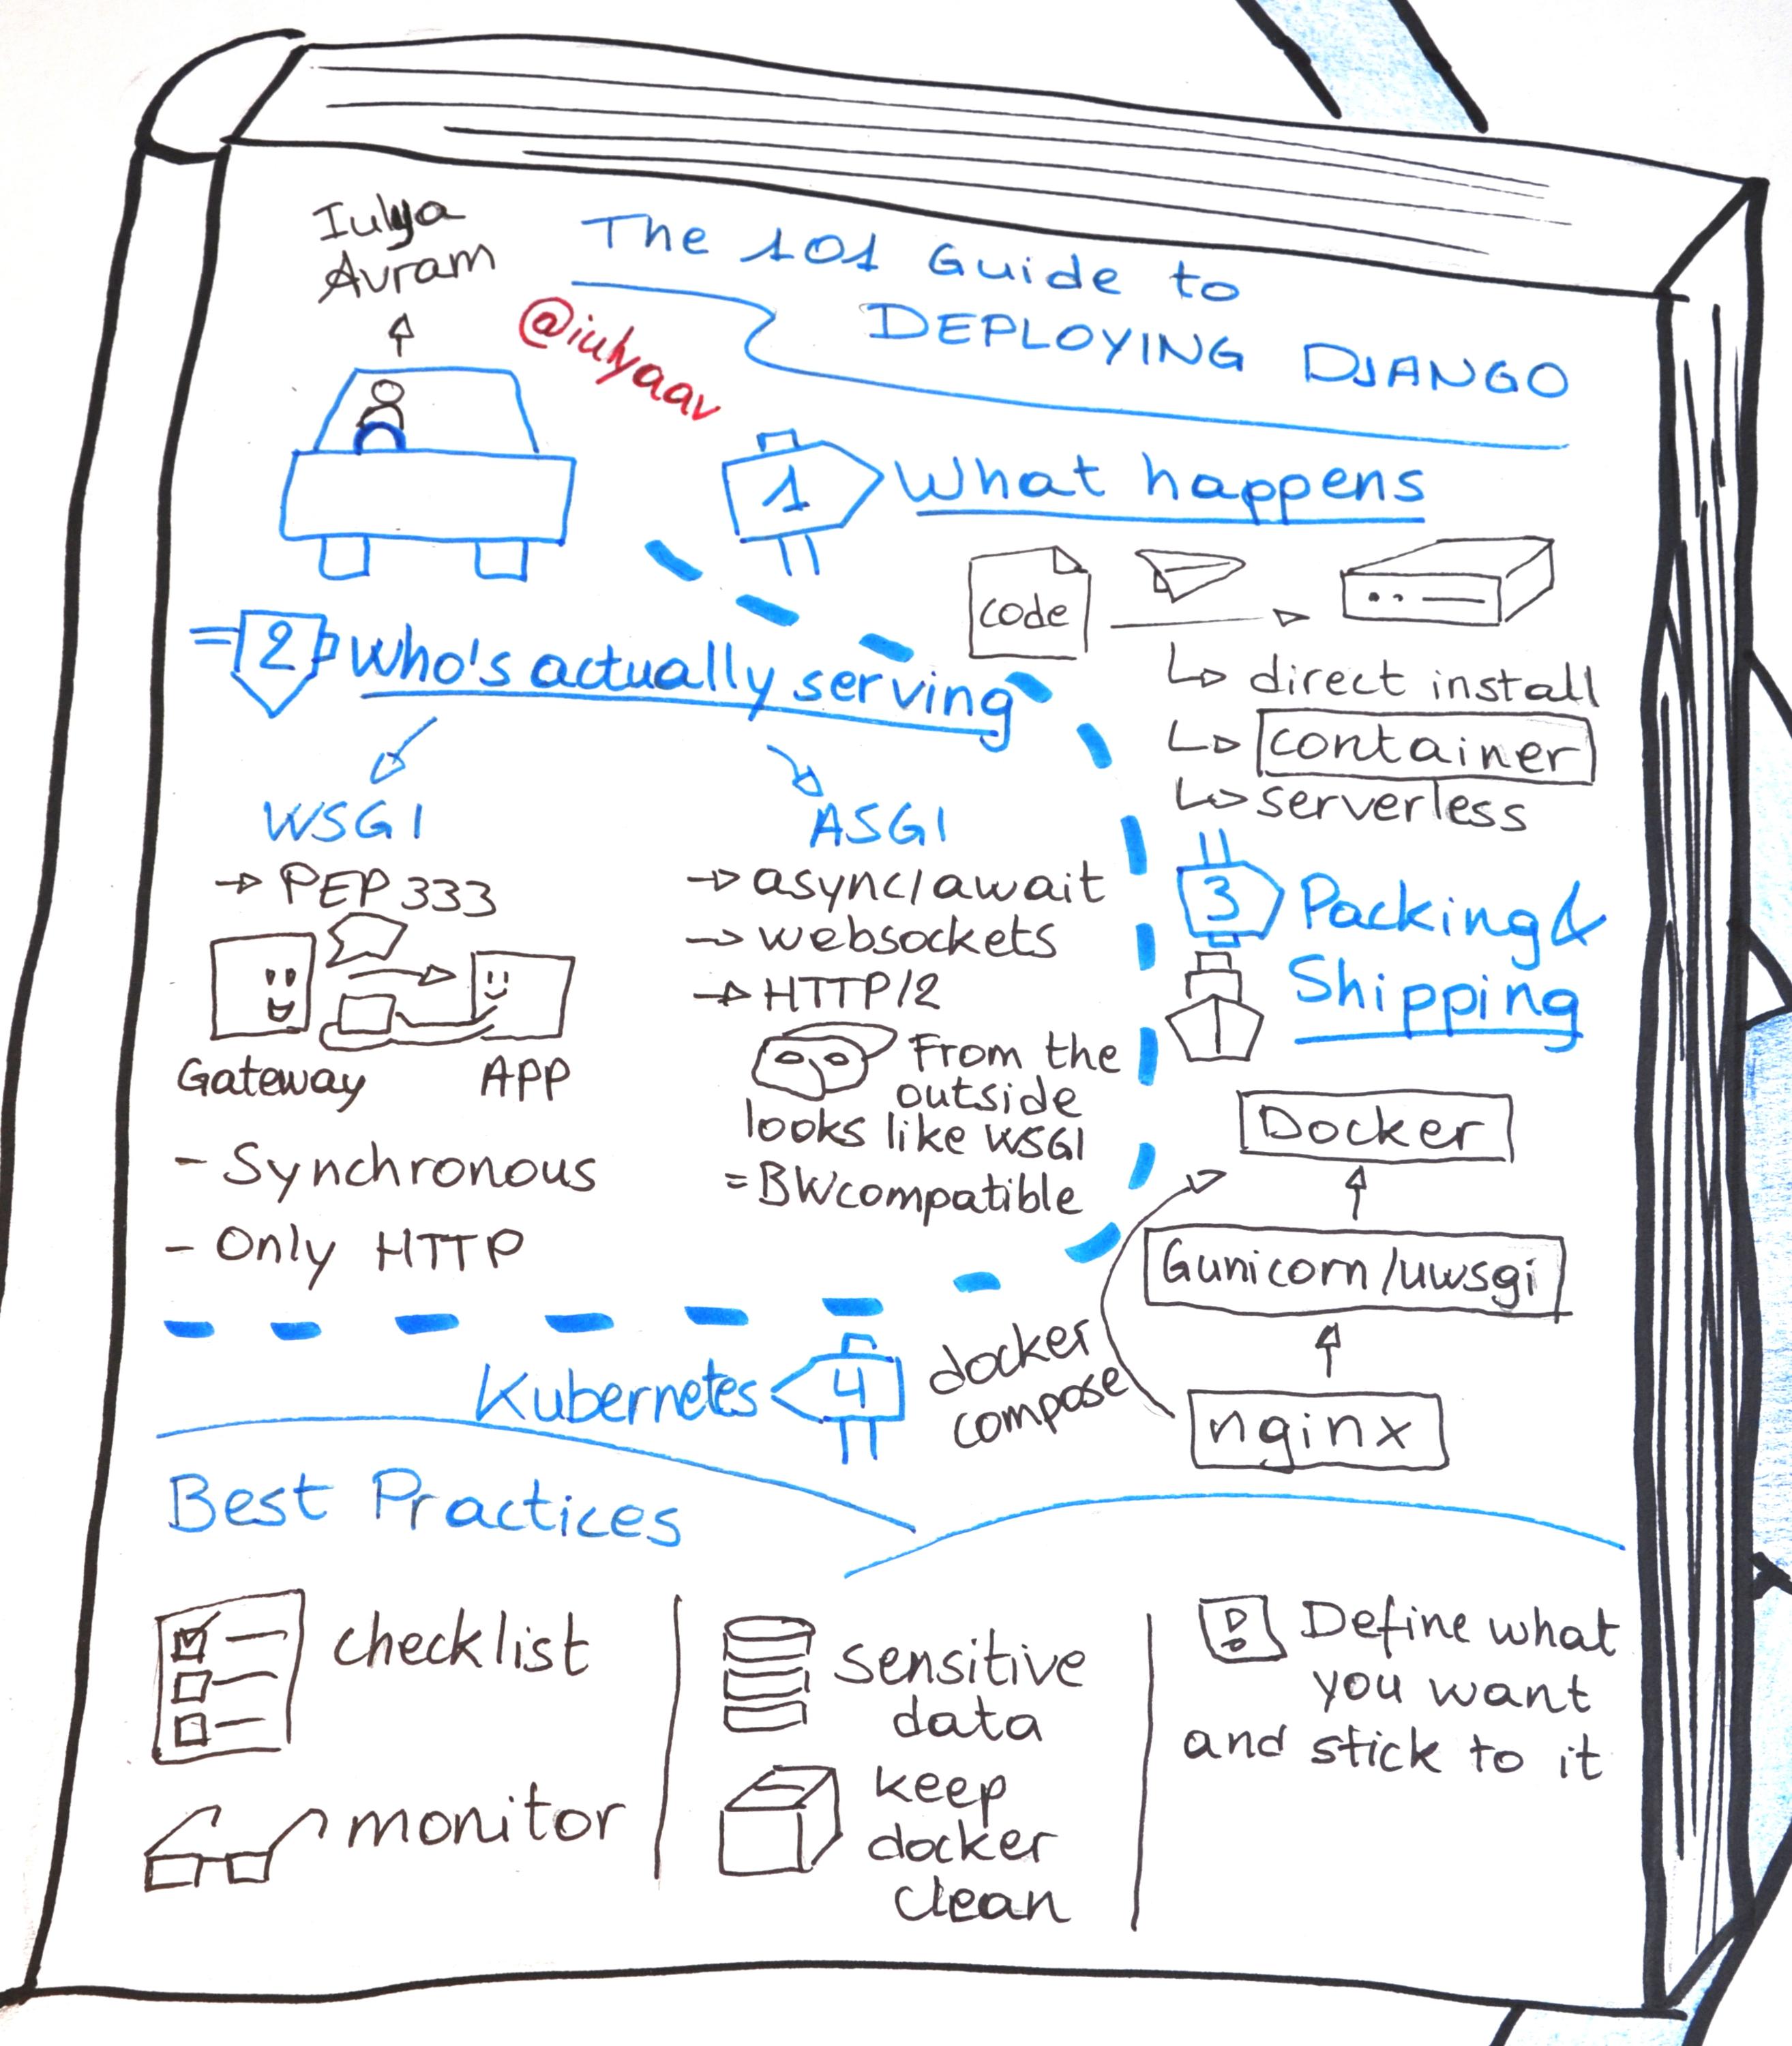 Iulya
Avram
@iulyaav
The 101 Guide to
DEPLOYING DJANGO
1 What happens
code
direct install
container
serverless
2 Who's actually serving
WSGI
PEP 333
Gateway
APP
- Synchronous
- Only HTTP
ASGI
async/await
websockets
HTTP/2
From the
outside
looks like WSGI
= BWcompatible
3 Packing &
Shipping
Docker
Gunicorn/uwsgi
nginx
docker
compose
4
Kubernetes
Best Practices
checklist
monitor
sensitive
data
keep
docker
clean
Define what
you want
and stick to it